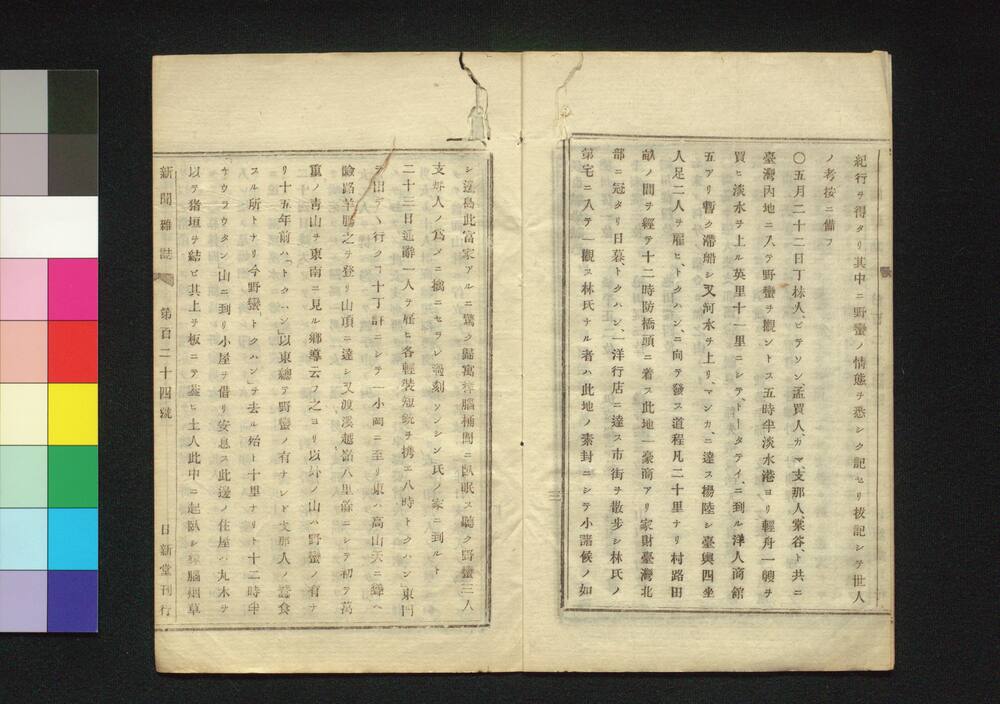 紀行ヲ得タリ其中ニ野蠻ノ情態ヲ悉シク記セリ抜記シテ世人
ノ考按ニ備フ
〇五月二十二日丁抹人、ピテソン、孟買人、カマ、支那人、棠谷、ト共ニ
臺灣内地ニ入テ野蠻ヲ觀ントス五時半淡水港ヨリ輕舟一艘ヲ
買ヒ淡水ヲ上ル英里十一里ニシテ、トータテイ、ニ到ル洋人商館
五アリ暫ク滯船シ又河水ヲ上リ、マンカ、ニ達ス揚陸シ臺輿四坐
人足二人ヲ雇ヒ、トクハン、ニ向テ發ス道程凡二十里ナリ村路田
畝ノ間ヲ經テ十二時防橋頭ニ着ス此地一豪商アリ家財臺灣北
部ニ冠タリ日暮、トクハン、一洋行店ニ達ス市街ヲ散歩シ林氏ノ
第宅ニ入テ一觀ス林氏ナル者ハ此地ノ素封ニシテ小諸候ノ如
シ邊島此富家アルニ驚ク歸寓樟腦桶間ニ臥眠ス聽ク野蠻三人
支那人ノ爲メニ擒ニセラレ過刻ソンシン氏ノ家ニ到ルト
二十三日通辭一人ヲ雇ヒ各輕装短銃ヲ携エ八時トクハン東門
ヲ出デヽ行ク二十丁許ニシテ一小岡ニ至リ東ハ高山天ニ聳ヘ
嶮路羊腸之ヲ登リ山頂ニ達シ又渡溪越嶺八里餘ニシテ初テ萬
重ノ青山ヲ東南ニ見ル郷導云フ之ヨリ以外ノ山ハ野蠻ノ有ナ
リ十五年前ハ「トクハン」以東總テ野蠻ノ有ナシド支那人ノ蠶食
スル所トナリ今野蠻、トクハン」ヲ去ル殆ト十里ナリト十二時半
ウラウタン山ニ到リ小屋ヲ借リ安息ス此邊ノ住屋ハ丸木ヲ
以テ猪垣ヲ結ヒ其上ヲ板ニテ葢ヒ土人此中ニ起臥シ樟腦烟草
新聞雜誌 第百二十四號 日新堂刊行
三